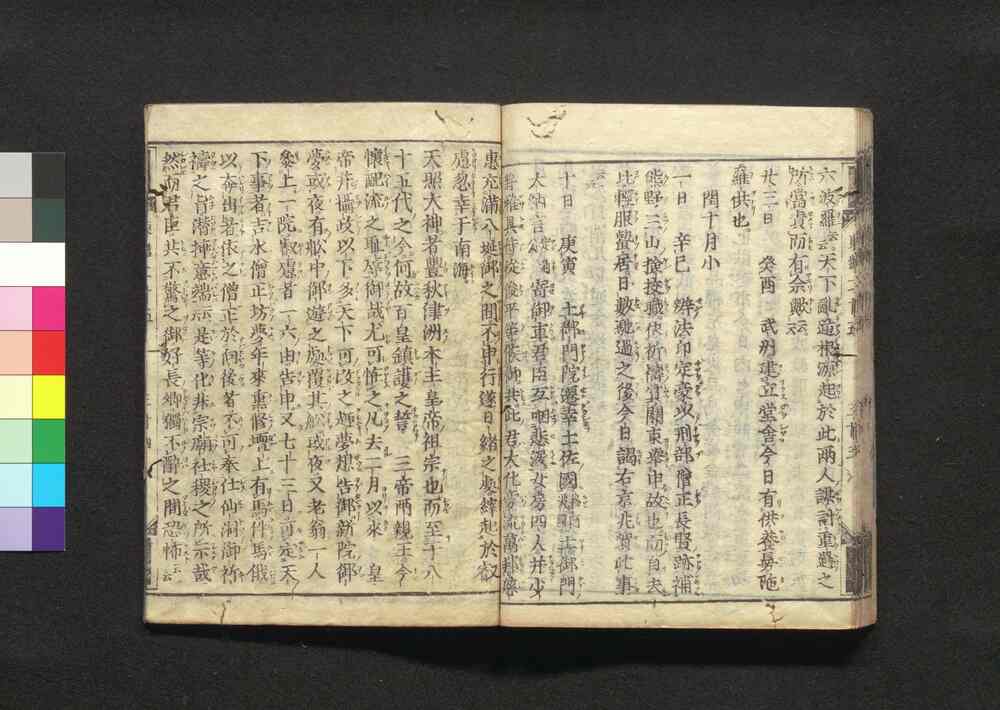 六波羅云云天下亂逆根源起於此兩人謀計重疊之
所當責而有余歟云云
廿三日　癸酉　武州建立堂舍今日有供養曼陁
羅供也
閏十月小
一日　辛巳　辨法印定豪以刑部僧正長賢跡補
熊野三山撿挍職快祈禱賞關東擧申故也而自夫
比輕服蟄居日數馳過之後今日謁右京兆賀此事
十日　庚寅　土御門院遷幸土佐國土御門
大納言寄御車君臣互咽悲淚女房四人并少
此君大化芳流萬邦
惠充滿八埏御之間不申行遂日緖之處絆起於叡
慮忽幸于南海
天照大神者豐秋津洲本主皇帝祖宗也而至于八
十五代之今何故百皇鎮護之誓　三帝兩親王令
懷配流之耻辱御哉尤可恠之凡去二月以來　皇
帝并攝政以下多天下可改之趣夢想告御新院御
夢或夜有船中御遊之處覆其船或夜又老翁一人
參上一院叡慮者一六由告申又七十三日可定天
下事者吉水僧正坊夢年來熏修壇上有馬件馬俄
以奔出者依之僧正於向後者不可奉仕仙洞御祈
禱之旨潜揷意端云云是等化非宗廟社稷之所示哉
然而君臣共不驚之御好長卿獨不辭之間恐怖云云